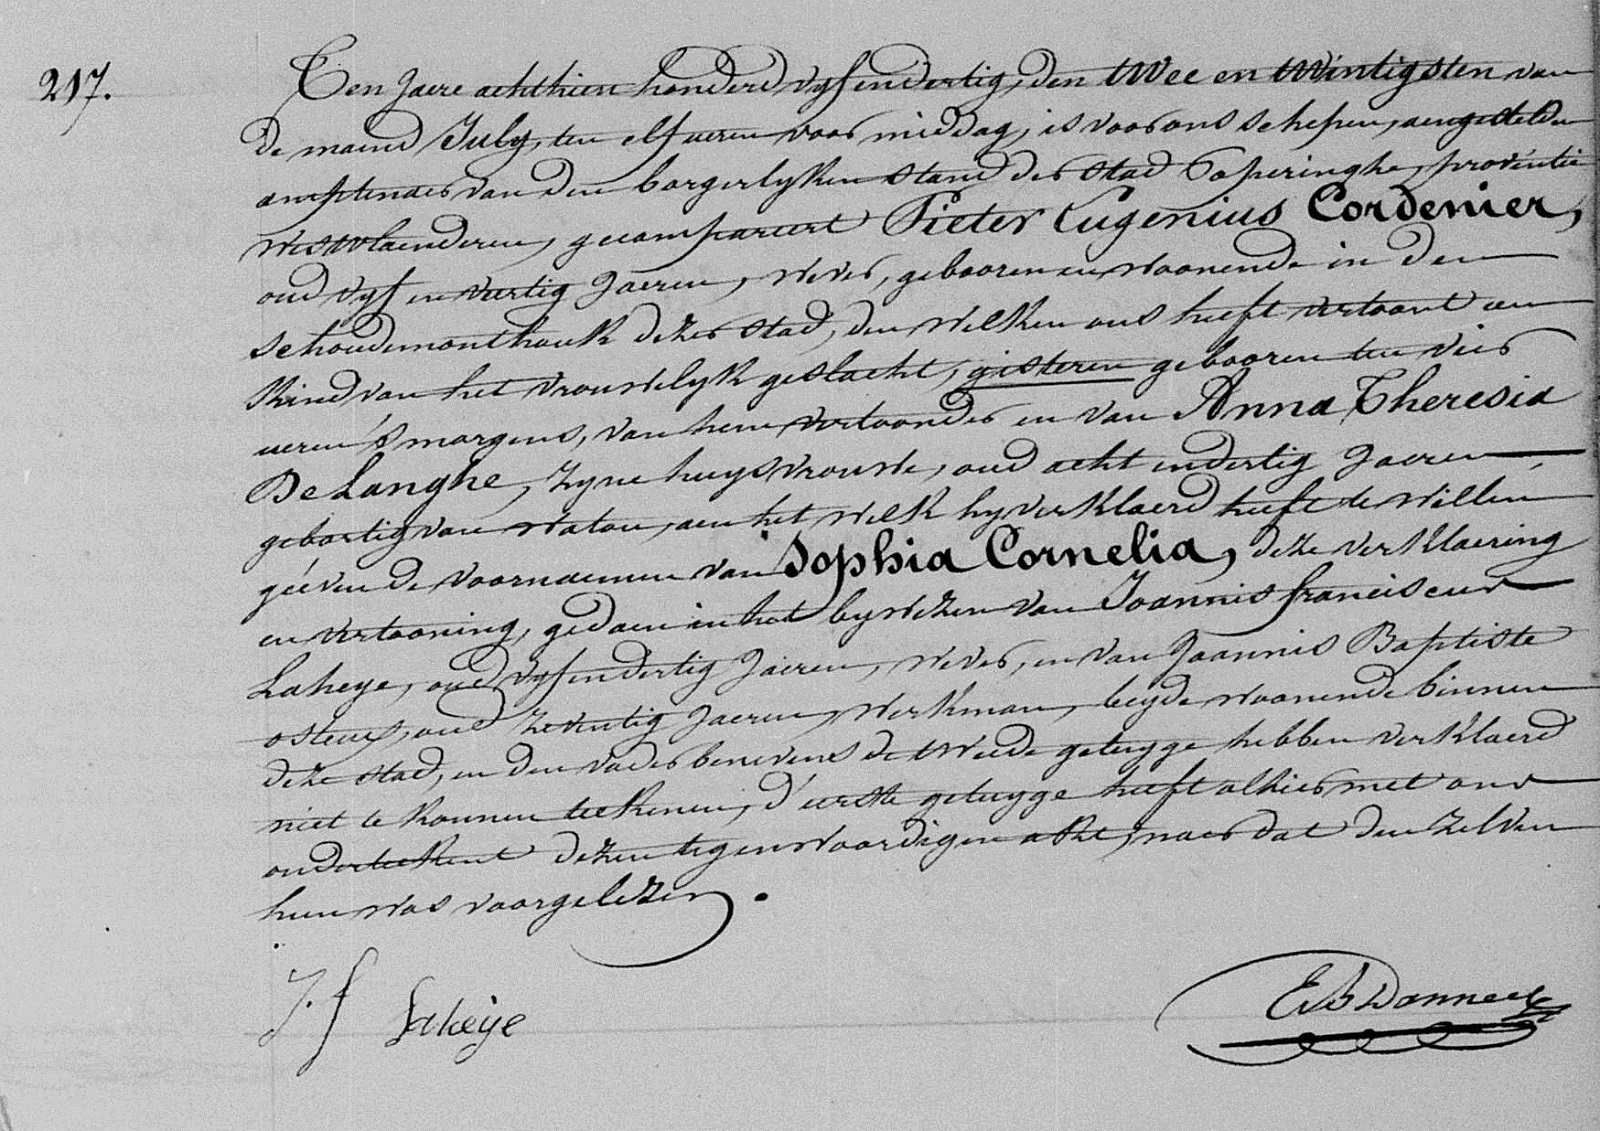 217.
Ten Jaere achthien honderd vyf en dertig, den twee en twintigsten van
de maend July, ten elf ueren voor middag, is voor ons schepen, aengestelden
amptenaer van den borgerlyken stand der stad Poperinghe, provintie
Westvlaenderen, gecompareert Pieter Eugenius Cordenier,
oud vyf en veertig Jaeren, wever, gebooren en woonende in den
schoudemonthouk dezer stad, den welken ons heeft vertoont een
kind van het vrouwelyk geslacht, gisteren gebooren ten vier
ueren 's morgens, van hem vertoonder en van Anna Theresia
De Langhe, zyne huysvrouwe, oud acht en dertig Jaeren,
gebortig van Watou, aen het welk hy verklaerd heeft te willen
geéven de voornaemen van Sophia Cornelia, deze verklaering
en vertooning, gedaen in het bywezen van Joannis franciscus
Laheye, oud vyf en dertig Jaeren, wever, en van Joannis Baptiste
osteux, oud zeventig Jaeren, werkman, beyde woonende binnen
deze stad, en den vader benevens de tweede getuyge hebben verklaerd
niet te konnen teekenen, d'eerste getuyge heeft alhier met ons
onderteekent dezen tegenwoordigen akt, naer dat den zelven
hun was voorgelezen.
J. f Laheye